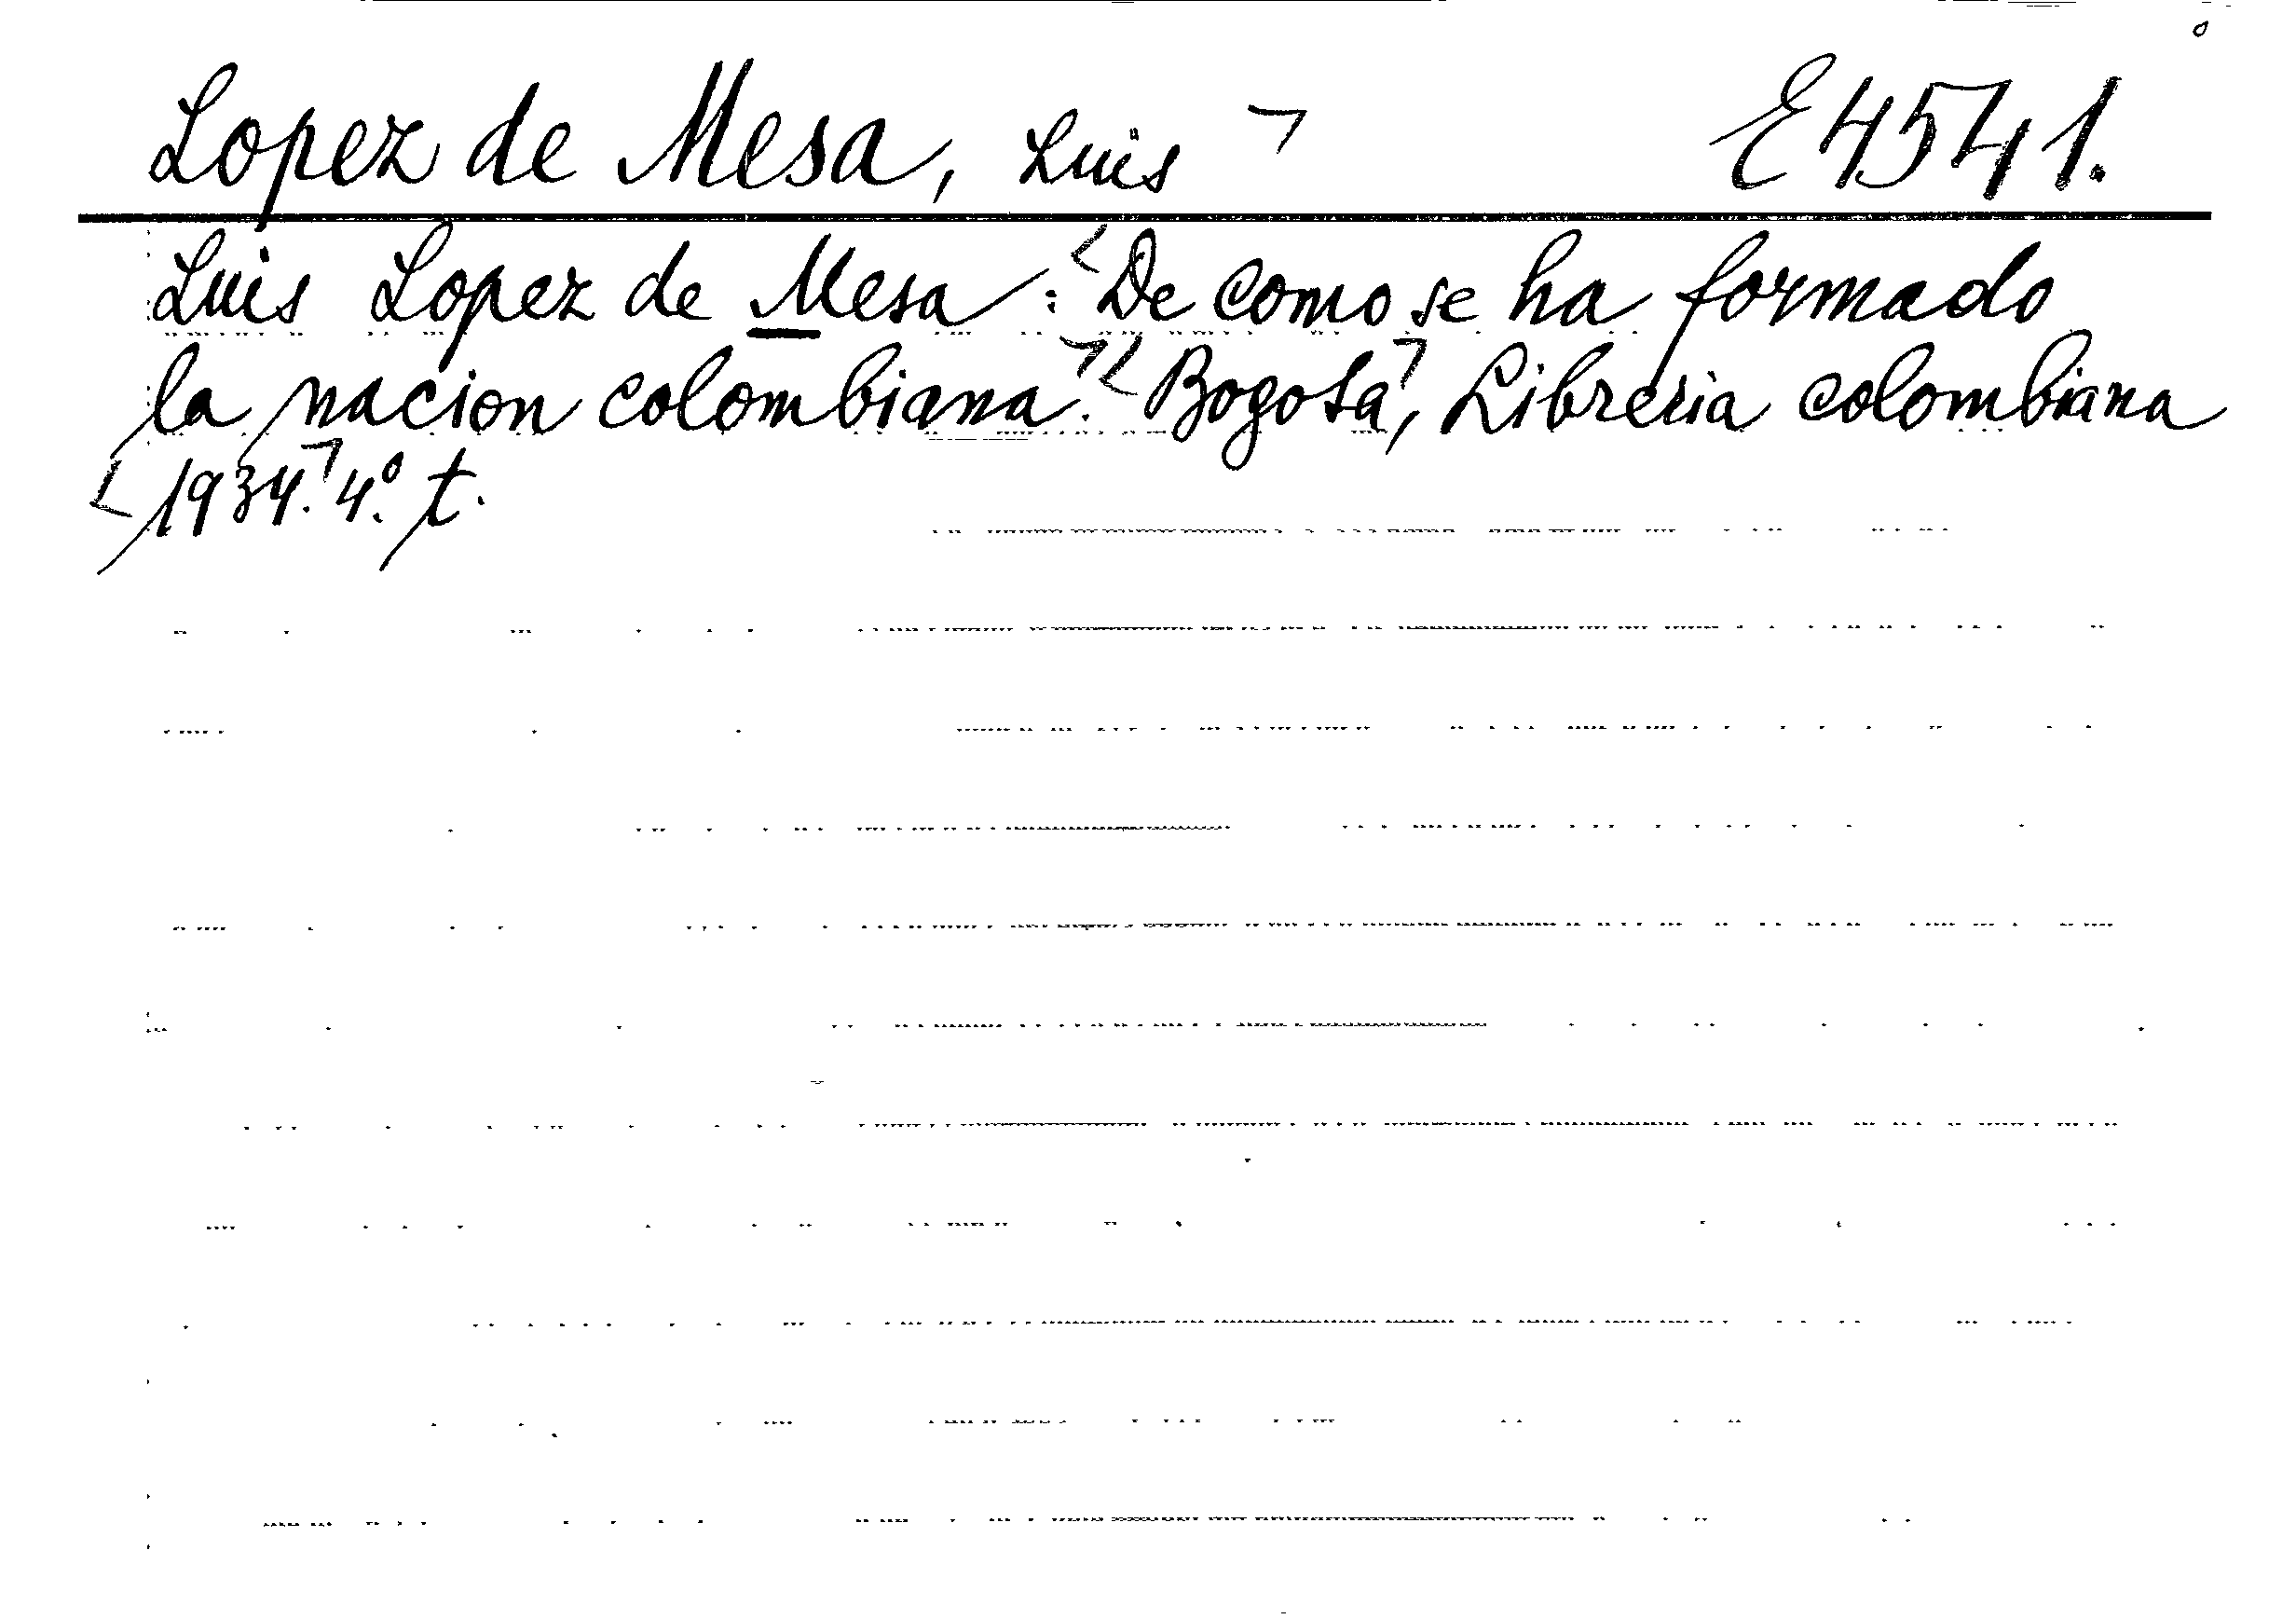 Lopez de Mesa, Luis ⌝ E4541.
Luis Lopez de Mesa: <De como se ha formado
la nacion colombiana.⌝ <Bogota⌝, Libreria colombiana
<1934.⌝ 4.º t.